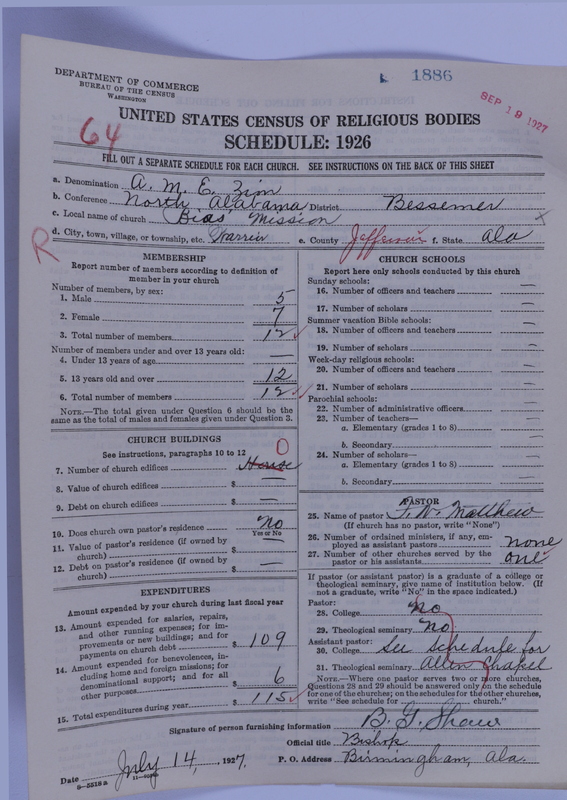 DEPARTMENT OF COMMERCE
BUREAU OF THE CENSUS
WASHINGTON
1886
SEP 19 1927
64
UNITED STATES CENSUS OF RELIGIOUS BODIES
SCHEDULE: 1926
FILL OUT A SEPARATE SCHEDULE FOR EACH CHURCH. SEE INSTRUCTIONS ON THE BACK OF THIS SHEET
a. Denomination A. M. E. Zion
b. Conference North Alabama District Bessemer
c. Local name of church Bias' Mission x
R
d. City, town, village, or township, etc. Warrior e. County Jefferson f. State Ala
MEMBERSHIP
Report number of members according to definition of
member in your church
Number of members, by sex:
1. Male 5
2. Female 7
3. Total number of members 12
Number of members under and over 13 years old:
4. Under 13 years of age —
5. 13 years old and over 12
6. Total number of members 12
NOTE.—The total given under Question 6 should be
the same as the total of males and females given under Question 3.
CHURCH BUILDINGS
See instructions, paragraphs 10 to 12 0
7. Number of church edifices House
8. Value of church edifices $ —
9. Debt on church edifices $ —
10. Does church own pastor's residence No
Yes or No
11. Value of pastor's residence (if owned by
church) $ —
12. Debt on pastor's residence (if owned by
church) $ —
EXPENDITURES
Amount expended by your church during last fiscal year
13. Amount expended for salaries, repairs,
and other running expenses; for im-
provements or new buildings; and for
payments on church debt $ 109
14. Amount expended for benevolences, in-
cluding home and foreign missions; for
denominational support; and for all
other purposes $ 6
15. Total expenditures during year $ 115
CHURCH SCHOOLS
Report here only schools conducted by this church
Sunday schools:
16. Number of officers and teachers —
17. Number of scholars —
Summer vacation Bible schools:
18. Number of officers and teachers —
19. Number of scholars —
Week-day religious schools:
20. Number of officers and teachers —
21. Number of scholars —
Parochial schools:
22. Number of administrative officers —
23. Number of teachers—
a. Elementary (grades 1 to 8) —
b. Secondary —
24. Number of scholars—
a. Elementary (grades 1 to 8) —
b. Secondary —
PASTOR
25. Name of pastor Matthew
(If church has no pastor, write "None")
26. Number of ordained ministers, if any, em-
ployed as assistant pastors none
27. Number of other churches served by the
pastor or his assistants one
If pastor (or assistant pastor) is a graduate of a college or
theological seminary, give name of institution below. (If
not a graduate, write "No" in the space indicated.)
Pastor:
28. College No
29. Theological seminary No
Assistant pastor:
30. College See Schedule for
31. Theological seminary Allen Chapel
NOTE.—Where one pastor serves two or more churches,
Questions 28 and 29 should be answered only on the schedule
for one of the churches; on the schedules for the other churches,
write "See schedule for church."
Signature of person furnishing information B. G. Shaw
Official title Bishop
Date July 14, 1927. P. O. Address Birmingham, Ala.
8-5518 a